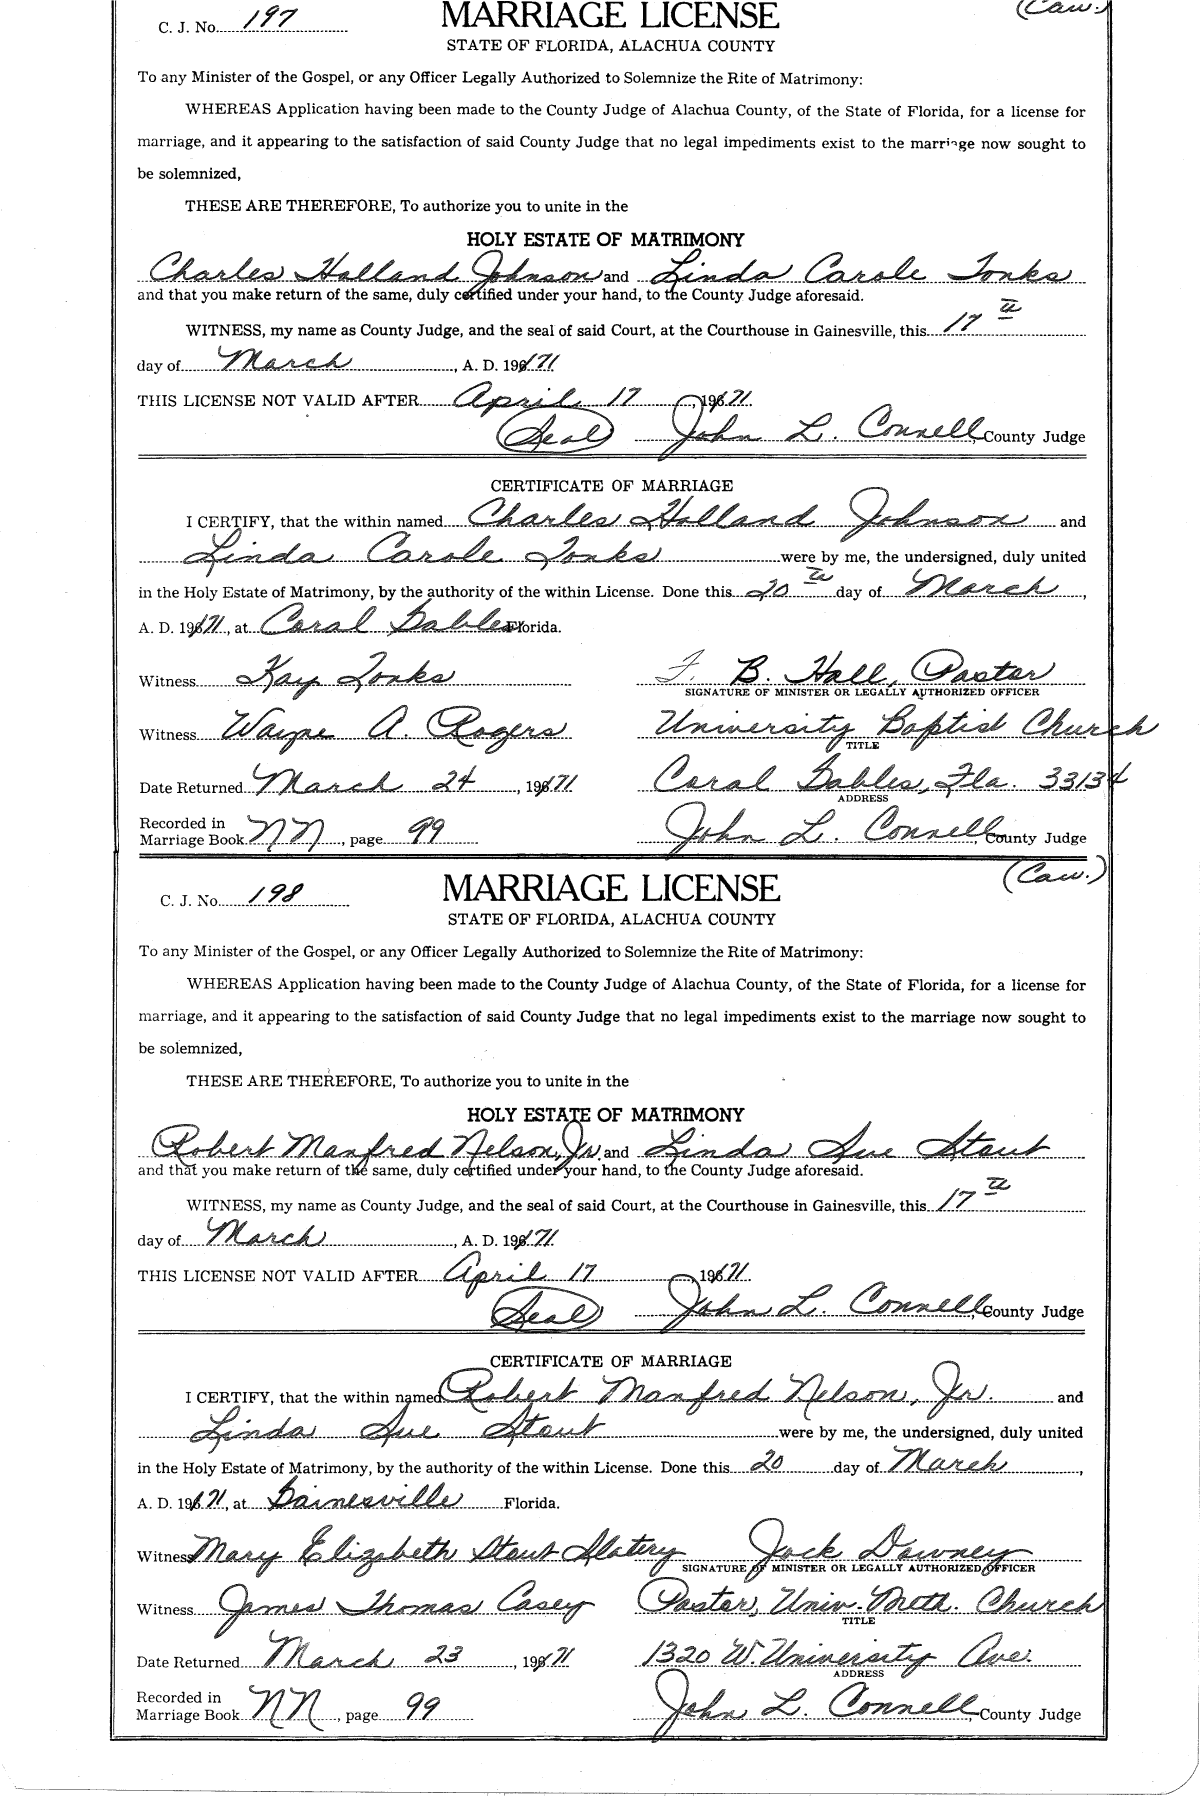 (Cau.)
C. J. No. 197 MARRIAGE LICENSE
STATE OF FLORIDA, ALACHUA COUNTY
To any Minister of the Gospel, or any Officer Legally Authorized to Solemnize the Rite of Matrimony:
WHEREAS Application having been made to the County Judge of Alachua County, of the State of Florida, for a license for
marriage, and it appearing to the satisfaction of said County Judge that no legal impediments exist to the marriage now sought to
be solemnized,
THESE ARE THEREFORE, To authorize you to unite in the
HOLY ESTATE OF MATRIMONY
Charles Holland Johnson and Linda Carole Tonks
and that you make return of the same, duly certified under your hand, to the County Judge aforesaid.
WITNESS, my name as County Judge, and the seal of said Court, at the Courthouse in Gainesville, this 17th
day of March, A. D. 1971
THIS LICENSE NOT VALID AFTER April 17, 1971.
(Seal) John L. Connell, County Judge
CERTIFICATE OF MARRIAGE
I CERTIFY, that the within named Charles Holland Johnson and
Linda Carole Tonks were by me, the undersigned, duly united
in the Holy Estate of Matrimony, by the authority of the within License. Done this 20th day of March,
A. D. 1971, at Coral Gables Florida.
Witness Kay Tonks F. B. Hall, Pastor
SIGNATURE OF MINISTER OR LEGALLY AUTHORIZED OFFICER
Witness Wayne A. Rogers University Baptist Church
TITLE
Date Returned March 24, 1971 Coral Gables, Fla. 33134
ADDRESS
Recorded in
Marriage Book NN, page 99 John L. Connell, County Judge
(Cau.)
C. J. No. 198 MARRIAGE LICENSE
STATE OF FLORIDA, ALACHUA COUNTY
To any Minister of the Gospel, or any Officer Legally Authorized to Solemnize the Rite of Matrimony:
WHEREAS Application having been made to the County Judge of Alachua County, of the State of Florida, for a license for
marriage, and it appearing to the satisfaction of said County Judge that no legal impediments exist to the marriage now sought to
be solemnized,
THESE ARE THEREFORE, To authorize you to unite in the
HOLY ESTATE OF MATRIMONY
Robert Manfred Nelson, Jr. and Linda Sue Stout
and that you make return of the same, duly certified under your hand, to the County Judge aforesaid.
WITNESS, my name as County Judge, and the seal of said Court, at the Courthouse in Gainesville, this 17th
day of March, A. D. 1971
THIS LICENSE NOT VALID AFTER April 17 1971.
(Seal) John L. Connell, County Judge
CERTIFICATE OF MARRIAGE
I CERTIFY, that the within named Robert Manfred Nelson, Jr. and
Linda Sue Stout were by me, the undersigned, duly united
in the Holy Estate of Matrimony, by the authority of the within License. Done this 20 day of March,
A. D. 1971, at Gainesville Florida.
Witness Mary Elizabeth Stout Slatery Jack Downey
SIGNATURE OF MINISTER OR LEGALLY AUTHORIZED OFFICER
Witness James Thomas Casey Pastor, Univ. Meth. Church
TITLE
Date Returned March 23, 1971 1320 W. University Ave.
ADDRESS
Recorded in
Marriage Book NN, page 99 John L. Connell, County Judge